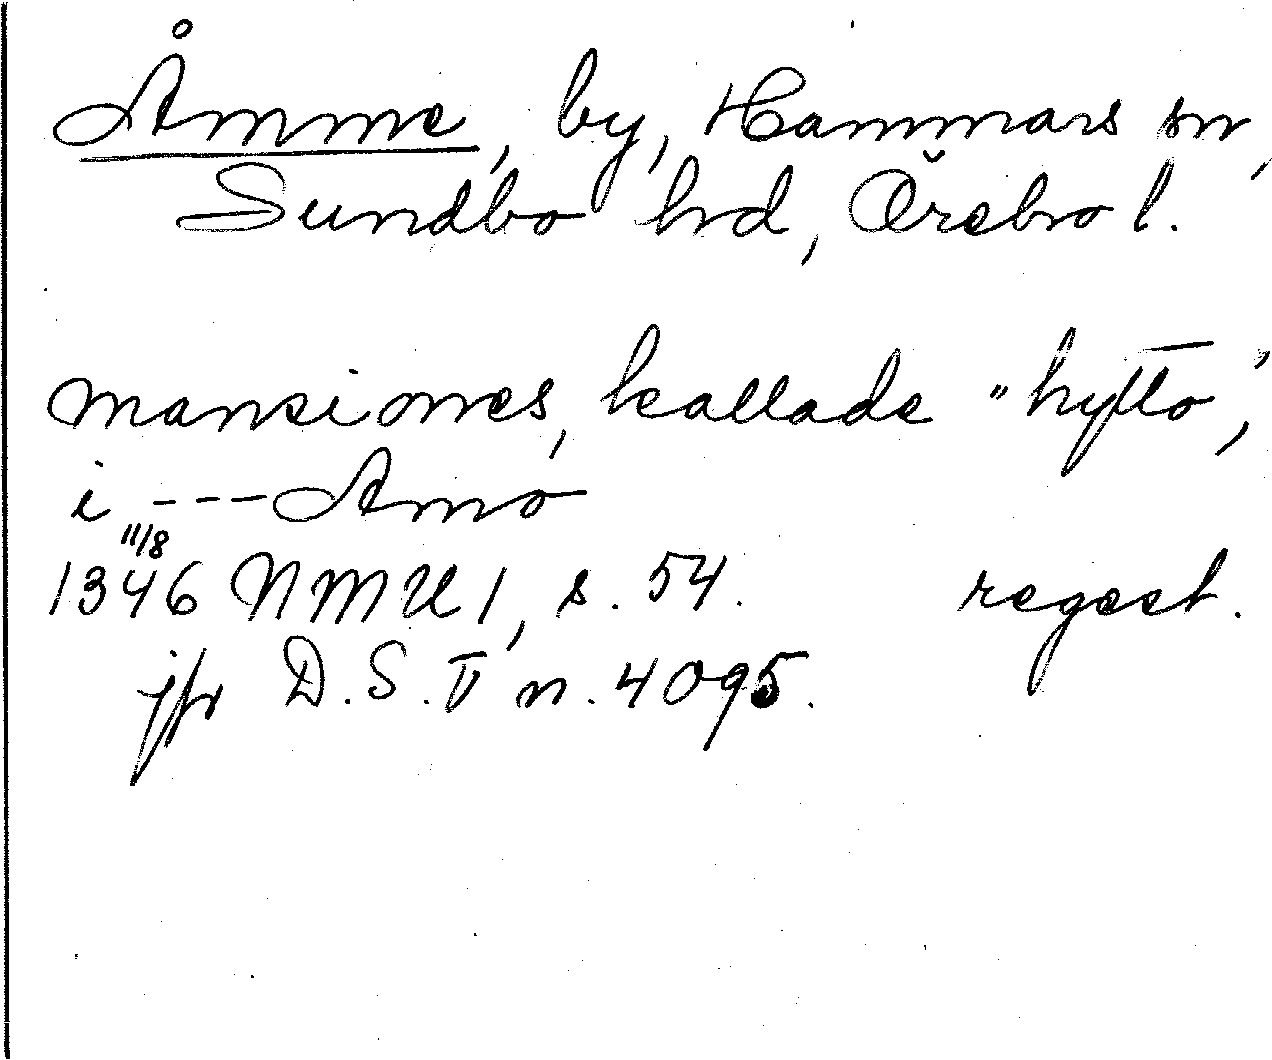 Åmme, by, Hammars sn,
Sundbo hd, Örebro l.
mansiones, kallade "hytto",
i ---Amo
11/8
1346 NMU 1, s. 54. regest.
jfr D.S. V n. 4095.